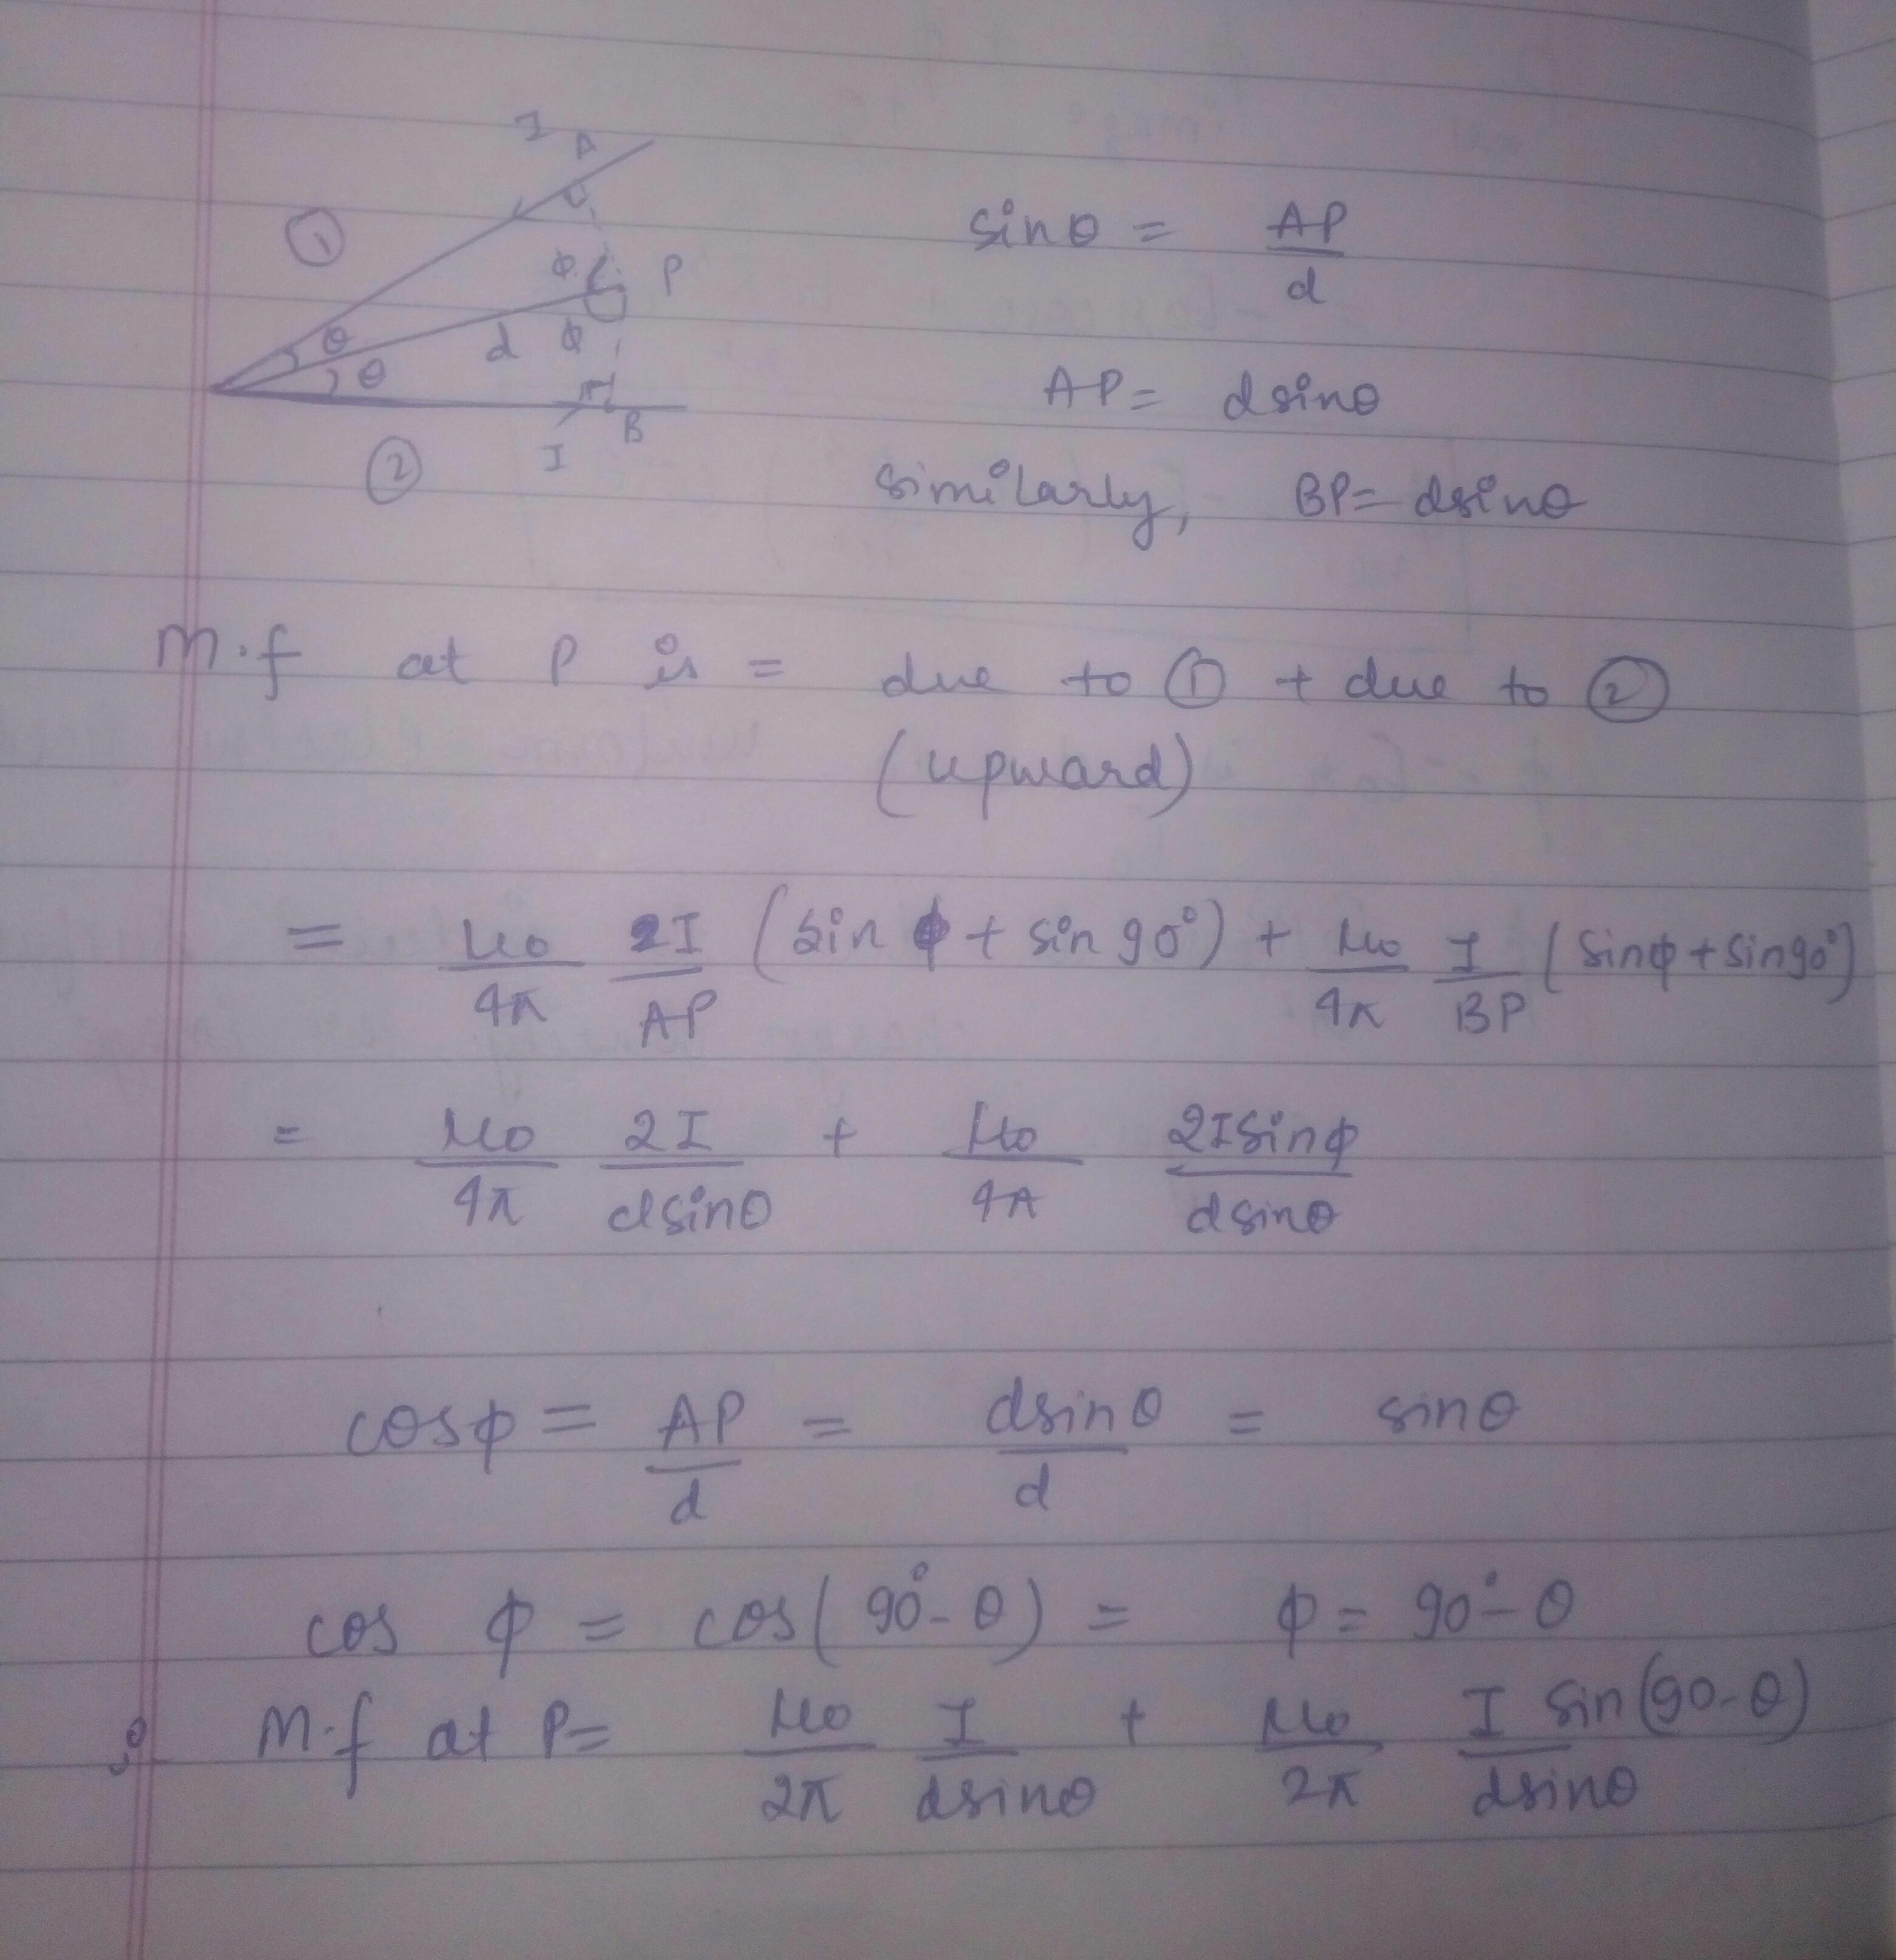 I A
①
sinθ = AP/d
Φ P
θ d Φ
θ
I B
②
AP = dsinθ
similarly, BP = dsinθ
M.f at P is = due to ① + due to ②
(upward)
= μ₀/4π 2I/AP (sin ϕ + sin 90°) + μ₀/4π I/BP (sinϕ + sin90°)
= μ₀/4π 2I/dsinθ + μ₀/4π 2Isinϕ/dsinθ
cosϕ = AP/d = dsinθ/d = sinθ
cos ϕ = cos(90° - θ) = ϕ = 90° - θ
M.f at P = μ₀/2π I/dsinθ + μ₀/2π I sin(90-θ)/dsinθ